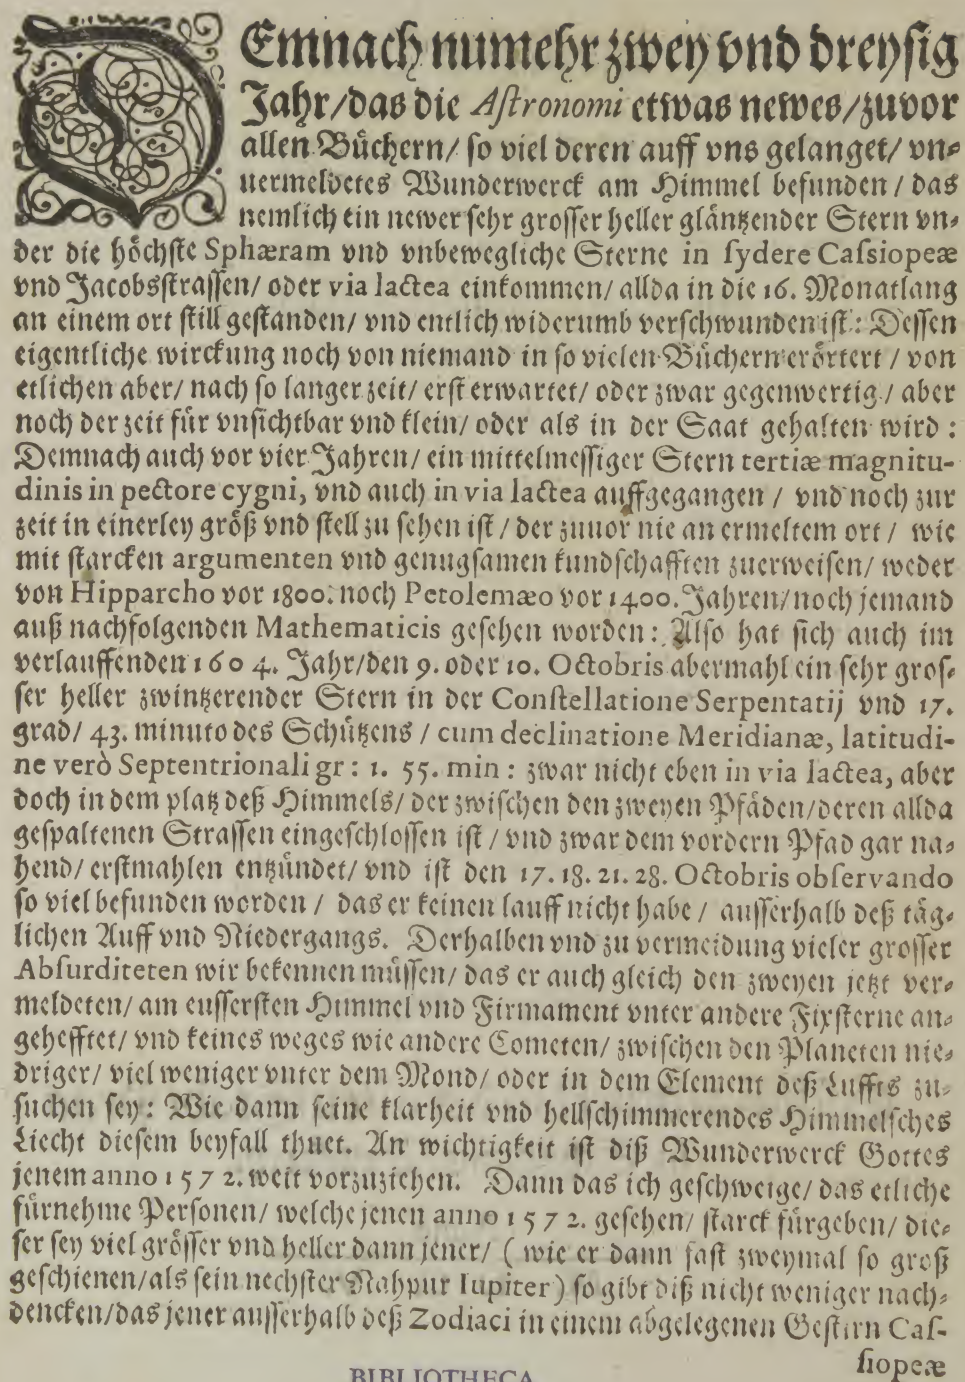 DEmnach numehr zwey vnd dreysig
Jahr/das die Astronomi etwas newes/zuvor
allen Büchern/ so viel deren auff vns gelanget/ vn-
uermeldetes Wunderwerck am Himmel befunden / das
nemlich ein newer sehr grosser heller gläntzender Stern vn-
der die höchste Sphæram vnd vnbewegliche Sterne in sydere Cassiopeæ
vnd Jacobsstrassen/ oder via lactea einkommen/ allda in die 16. Monatlang
an einem ort still gestanden/ vnd entlich widerumb verschwunden ist: Dessen
eigentliche wirckung noch von niemand in so vielen Büchern erörtert / von
etlichen aber/ nach so langer zeit/ erst erwartet/ oder zwar gegenwertig / aber
noch der zeit für vnsichtbar vnd klein/ oder als in der Saat gehalten wird :
Demnach auch vor vier Jahren/ ein mittelmessiger Stern tertiæ magnitu-
dinis in pectore cygni, vnd auch in via lactea auffgegangen / vnd noch zur
zeit in einerley größ vnd stell zu sehen ist / der zuuor nie an ermeltem ort / wie
mit starcken argumenten vnd genugsamen kundschafften zuerweisen/ weder
von Hipparcho vor 1800. noch Petolemæo vor 1400. Jahren/noch jemand
auß nachfolgenden Mathematicis gesehen worden: Also hat sich auch im
verlauffenden 1604. Jahr/den 9. oder 10. Octobris abermahl ein sehr gros-
ser heller zwintzerender Stern in der Constellatione Serpentatij vnd 17.
grad/ 43. minuto des Schützens / cum declinatione Meridianæ, latitudi-
ne verò Septentrionali gr: 1. 55. min : zwar nicht eben in via lactea, aber
doch in dem platz deß Himmels/ der zwischen den zweyen Pfäden/deren allda
gespaltenen Strassen eingeschlossen ist / vnd zwar dem vordern Pfad gar na-
hend/ erstmahlen entzündet/ vnd ist den 17. 18. 21. 28. Octobris observando
so viel befunden worden / das er keinen lauff nicht habe / ausserhalb deß täg-
lichen Auff vnd Niedergangs. Derhalben vnd zu vermeidung vieler grosser
Absurditeten wir bekennen müssen/ das er auch gleich den zweyen jetzt ver-
meldeten/ am eussersten Himmel vnd Firmament vnter andere Fixsterne an-
gehefftet/ vnd keines weges wie andere Cometen/ zwischen den Planeten nie-
driger/ viel weniger vnter dem Mond/ oder in dem Element deß Luffts zu-
suchen sey: Wie dann seine klarheit vnd hellschimmerendes Himmelsches
Liecht diesem beyfall thuet. An wichtigkeit ist diß Wunderwerck Gottes
jenem anno 1572. weit vorzuziehen. Dann das ich geschweige/ das etliche
fürnehme Personen/ welche jenen anno 1572. gesehen/ starck fürgeben/ die-
ser sey viel grösser vnd heller dann jener/ ( wie er dann fast zweymal so groß
geschienen/als sein nechster Nahpur Iupiter ) so gibt diß nicht weniger nach-
dencken/das jener ausserhalb deß Zodiaci in einem abgelegenen Gestirn Cas-
siopeæ
BIBLIOTHECA